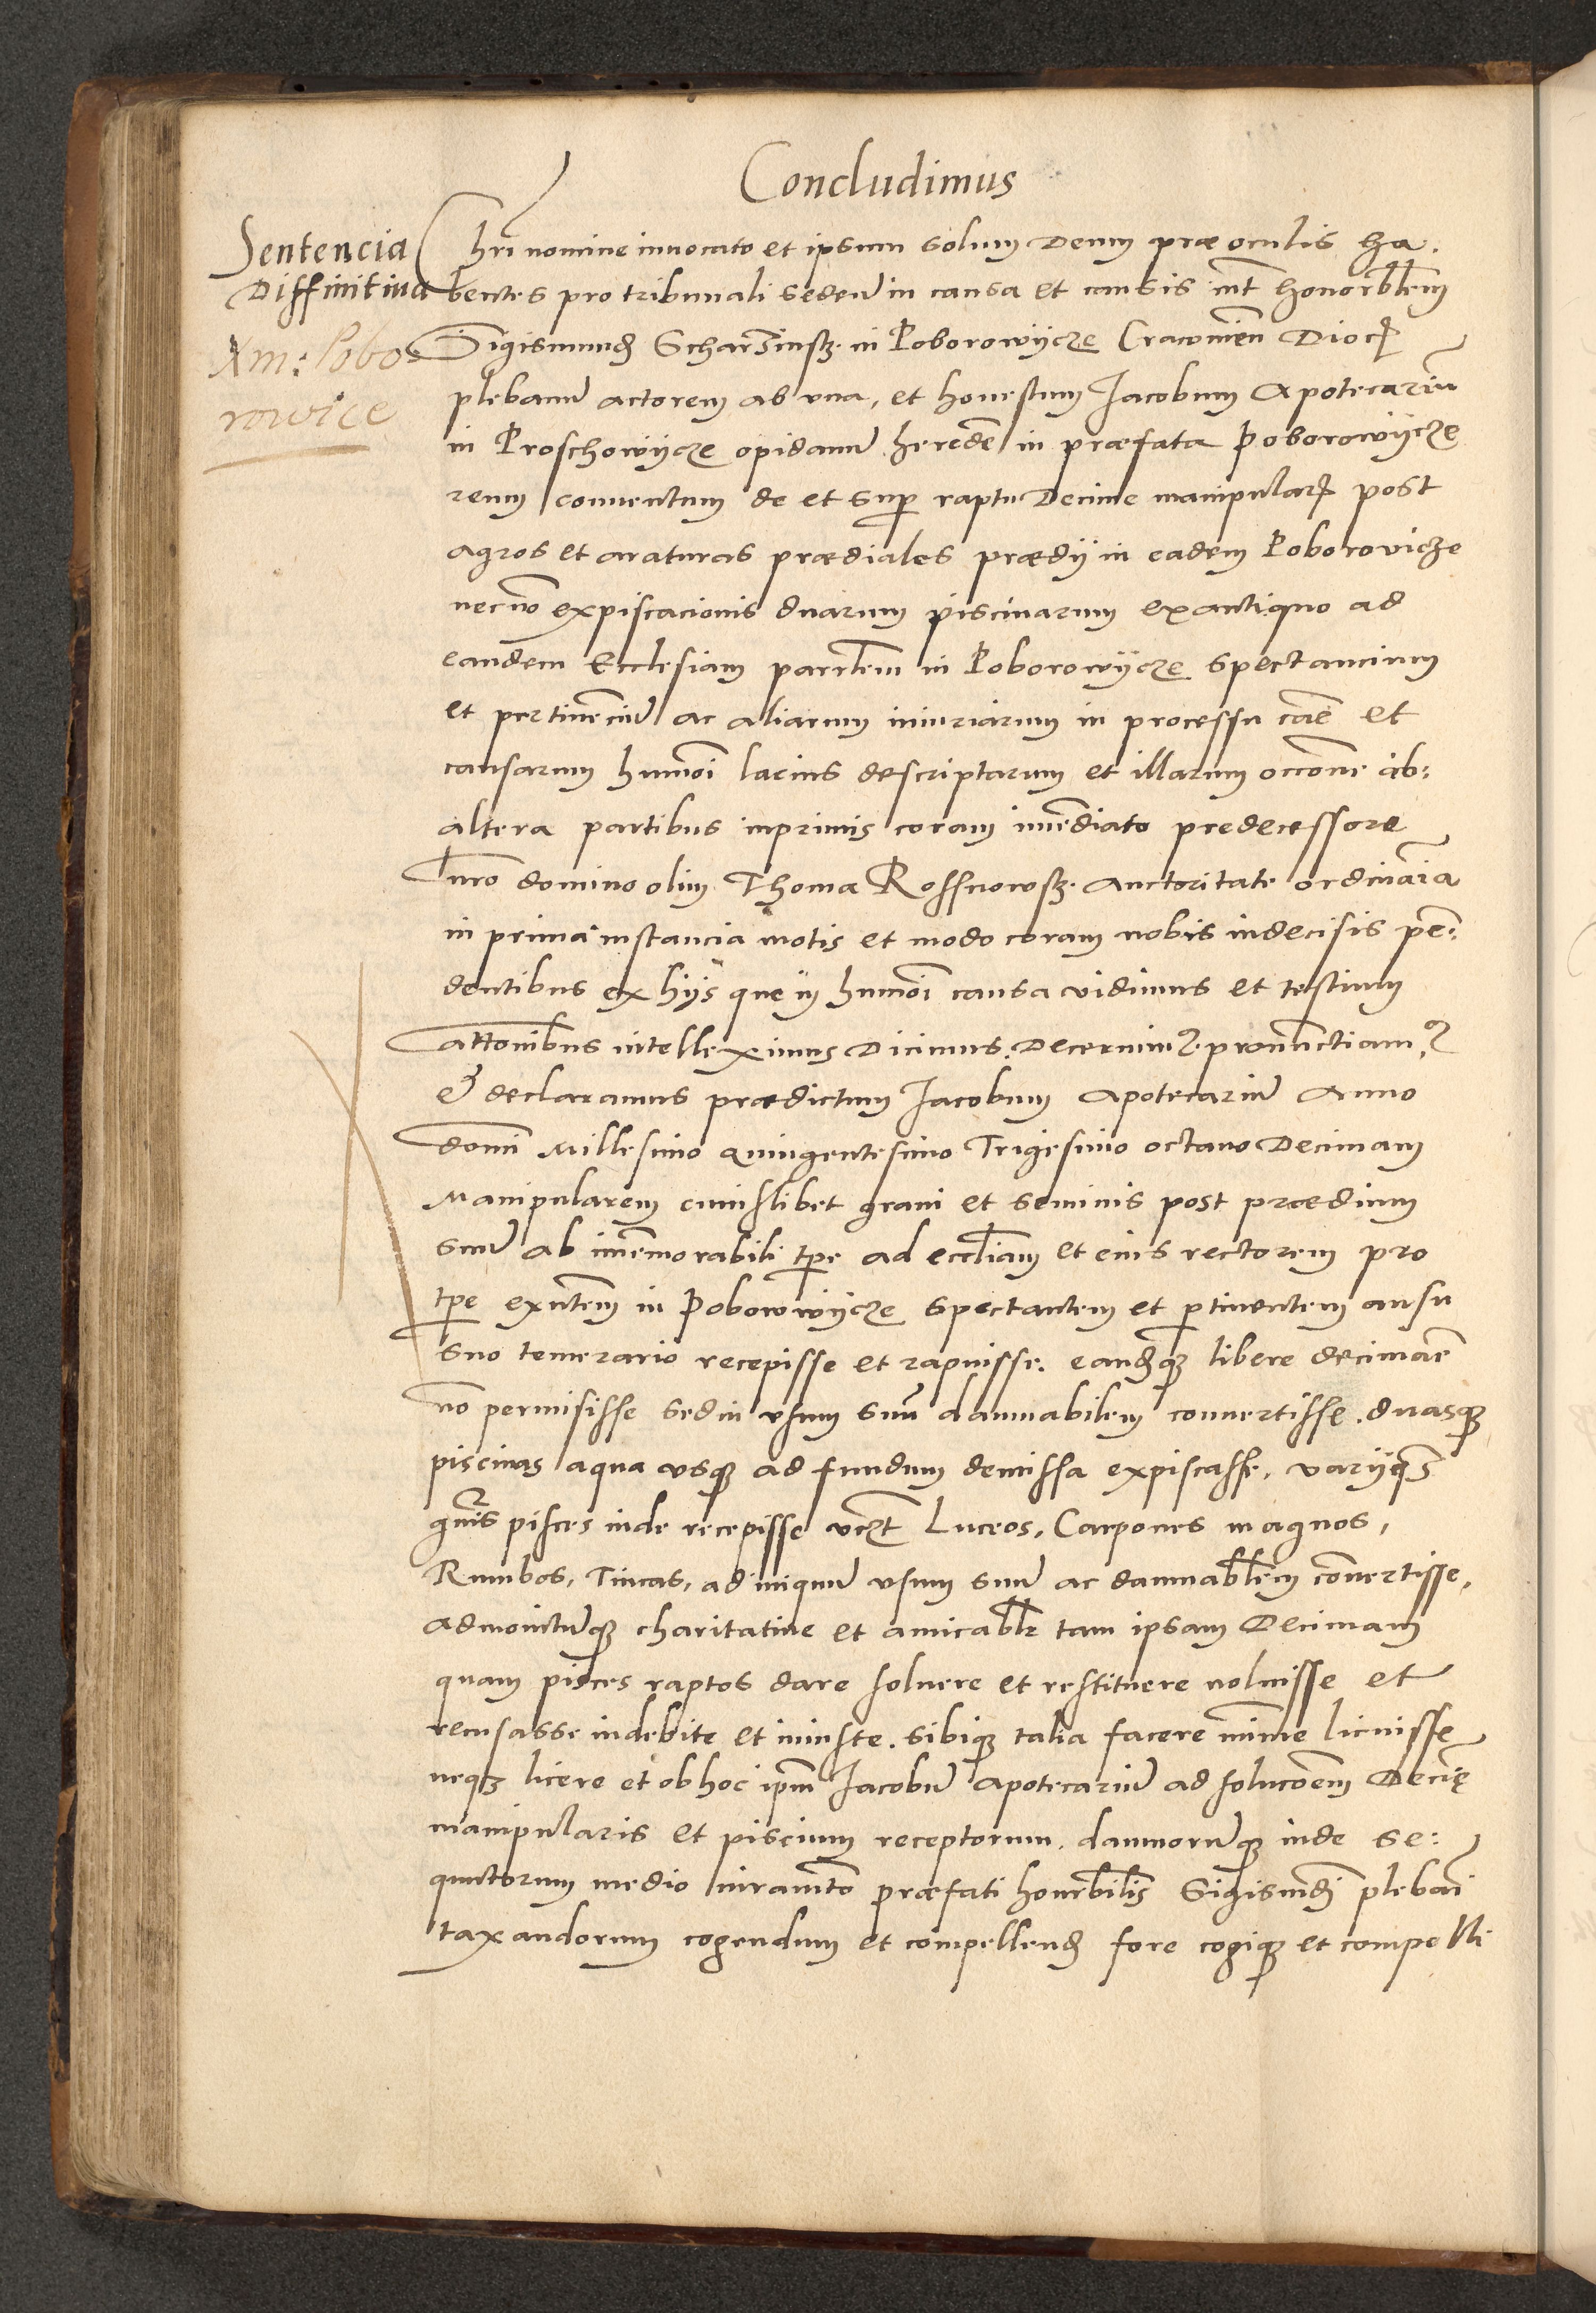 Concludimus
Sentencia
Diffinitiua
Xm: Pobo
rowice
Chri nomine inuocato et ipsum solum Deum præ oculis ha.
bentes pro tribunali seden in causa et causis int honorblem
Sigismund Scharsinsk. in Poborowÿcze Cracouien Dioc
plebanu actorem ab vna, et honestum Jacobum Apotecariu
in Proschowÿcze opidanu herede in præfata Poborowÿcze
reum conuentum de et sup raptu Decime manipular post
agros et araturas prædiales prædÿ in eadem Poborovicze
necno expiscacionis duarum piscinarum exantiquo ad
eandem Ecclesiam parrlem in Poborowÿcze spectancium
et pertinenciu ac aliarum iniuriarum in processu cae et
causarum humoi lacius descriptarum et illarum occone ab:
altera partibus inprimis coram imediato predecessore
nro domino olim Thoma Rossnowsk. Auctoritate ordinaria
in prima instancia motis et modo coram nobis indecisis pe:
dentibus ex hÿs que in humoi causa vidimus et testium
attonibus intelleximus Dicimus. Decernim9. pronunctiam9
& declaramus prædictum Jacobum Apotecariu Anno
domi Millesimo Quingentesimo Trigesimo octauo Decimam
Manipularem cuiuslibet grani et seminis post prædium
suu ab imemorabili tpe ad eccliam et eius rectorem pro
tpe exntem in Poborowÿcze spectantem et ptinentem ausu
suo temerario recepisse et rapuisse. eandqz libere decimare
no permisisse sed in vsum suu damnabilem conuertisse. duasqz
piscinas aqua vsqz ad fundum demissa expiscasse, varÿqz
gnis pisces inde recepisse vczt Luceos, Carpones magnos,
Rumbos, Tincas, ad iniquu vsum suu ac damnablem couertisse,
admonituqz charitatiue et amicablr tam ipsam Decimam
quam pisces raptos dare soluere et restituere noluisse et
recusasse indebite et iniuste. sibiqz talia facere mime licuisse
neqz licere et ob hoc ipm Jacobu Apotecariu ad solucoem Decie
manipularis et piscium receptorum. damnoruqz inde se:
quutorum medio iuramto præfati honorbilis Sigismdi plebani
taxandorum cogendum et compellend fore cogiqz et compelli